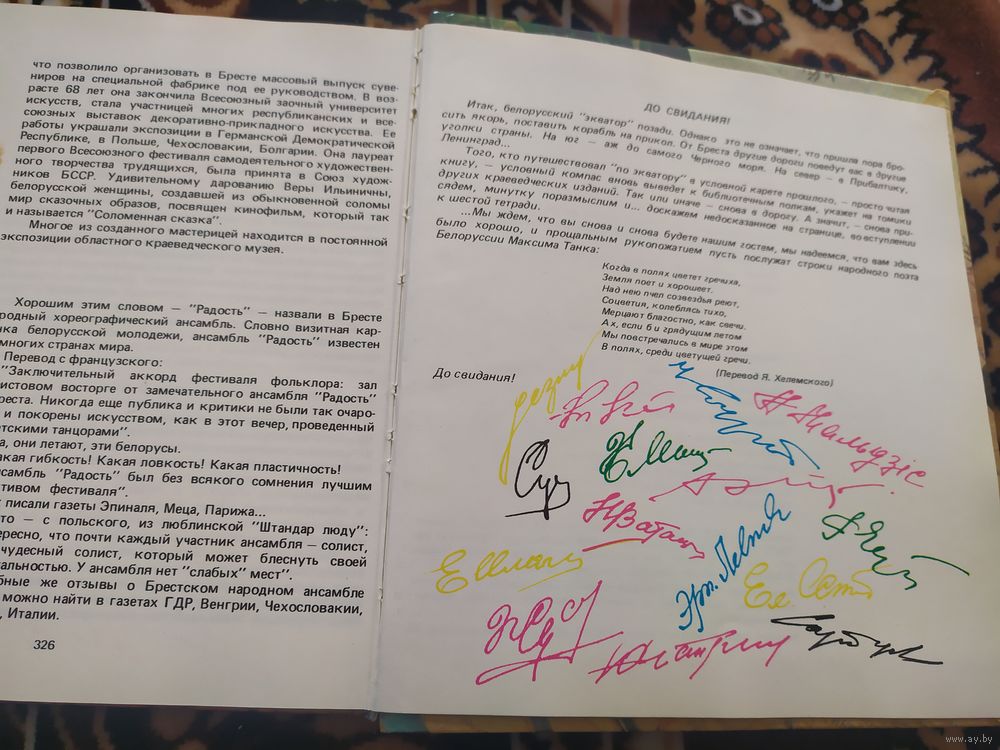 что позволило организовать в Бресте массовый выпуск суве-
ниров на специальной фабрике под ее руководством. В воз-
расте 68 лет она закончила Всесоюзный заочный университет
искусств, стала участницей многих республиканских и все-
союзных выставок декоративно-прикладного искусства. Ее
работы украшали экспозиции в Германской Демократической
Республике, в Польше, Чехословакии, Болгарии. Она лауреат
первого Всесоюзного фестиваля самодеятельного художествен-
ного творчества трудящихся, была принята в Союз худож-
ников БССР. Удивительному дарованию Веры Ильиничны,
белорусской женщины, создавшей из обыкновенной соломы
мир сказочных образов, посвящен кинофильм, который так
и называется "Соломенная сказка".
Многое из созданного мастерицей находится в постоянной
экспозиции областного краеведческого музея.
Хорошим этим словом — "Радость" — назвали в Бресте
родный хореографический ансамбль. Словно визитная кар-
ка белорусской молодежи, ансамбль "Радость" известен
многих странах мира.
Перевод с французского:
"Заключительный аккорд фестиваля фольклора: зал
истовом восторге от замечательного ансамбля "Радость"
реста. Никогда еще публика и критики не были так очаро-
и покорены искусством, как в этот вечер, проведенный
етскими танцорами".
а, они летают, эти белорусы.
акая гибкость! Какая ловкость! Какая пластичность!
нсамбль "Радость" был без всякого сомнения лучшим
тивом фестиваля".
писали газеты Эпиналя, Меца, Парижа...
то — с польского, из люблинской "Штандар люду":
ересно, что почти каждый участник ансамбля — солист,
чудесный солист, который может блеснуть своей
альностью. У ансамбля нет "слабых" мест".
бные же отзывы о Брестском народном ансамбле
можно найти в газетах ГДР, Венгрии, Чехословакии,
, Италии.
326
ДО СВИДАНИЯ!
Итак, белорусский "экватор" позади. Однако это не означает, что пришла пора бро-
сить якорь, поставить корабль на прикол. От Бреста другие дороги поведут вас в другие
уголки страны. На юг — аж до самого Черного моря. На север — в Прибалтику,
Ленинград...
Того, кто путешествовал "по экватору" в условной карете прошлого, — просто читая
книгу, — условный компас вновь выведет к библиотечным полкам, укажет на томики
других краеведческих изданий. Так или иначе — снова в дорогу. А значит, — снова при-
сядем, минутку поразмыслим и... доскажем недосказанное на странице, во вступлении
к шестой тетради.
...Мы ждем, что вы снова и снова будете нашим гостем, мы надеемся, что вам здесь
было хорошо, и прощальным рукопожатием пусть послужат строки народного поэта
Белоруссии Максима Танка:
Когда в полях цветет гречиха,
Земля поет и хорошеет.
Над нею пчел созвездья реют,
Соцветия, колеблясь тихо,
Мерцают благостно, как свечи.
Ах, если б и грядущим летом
Мы повстречались в мире этом
В полях, среди цветущей гречи.
(Перевод Я. Хелемского)
До свидания!
www.ay.by